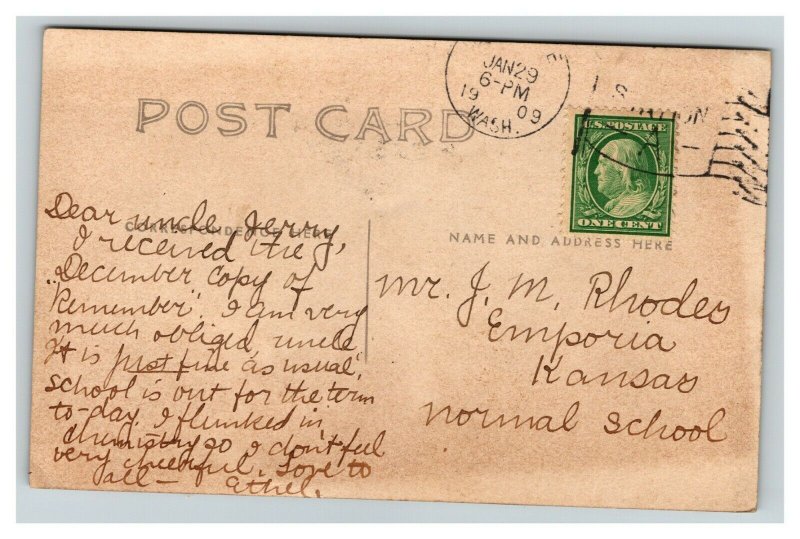 POST CARD
JAN 29
6-PM
19 09
WASH.
U.S. POSTAGE
ONE CENT
CORRESPONDENCE HERE
NAME AND ADDRESS HERE
Dear uncle Jerry,
I received the
"December copy of
Remember". I am very
much obliged, uncle
It is just fine as usual,
school is out for the term
to-day. I flunked in
chemistry so I don't feel
very cheerful. Love to
all— Ethel.
Mr. J. M. Rhodes
Emporia
Kansas
normal School